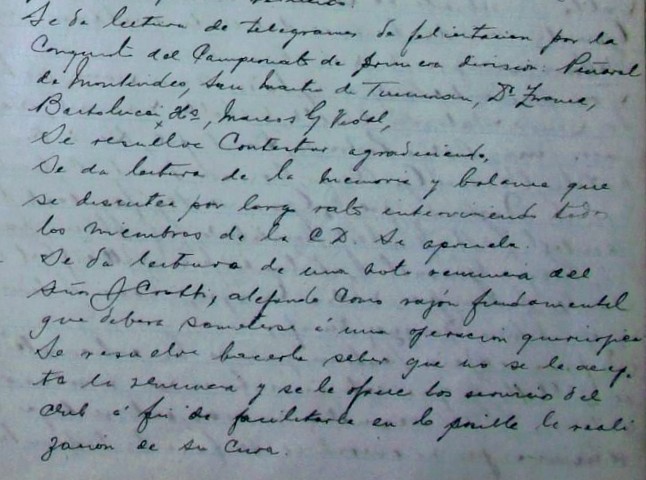 Se da lectura de telegramas de felicitacion por la
Conquista del Campeonato de primera division: Peñarol
de Montevideo, San Martin de Tucuman, Dr
Bartolucci x Ho, Marcos G Vidal,
Se resuelve Contestar agradeciendo.
Se da lectura de la memoria y balance que
se discute por largo rato interviniendo todos
los miembros de la C D. Se aprueba.
Se da lectura de una nota renuncia del
Señor J Crotti, alegando como razón fundamental
que debera someterse á una operacion quirurgica
Se resuelve hacerle saber que no se le acep-
ta la renuncia y se le ofrece los servicios del
club á fin de facilitarle en lo posible la reali
zación de su cura.